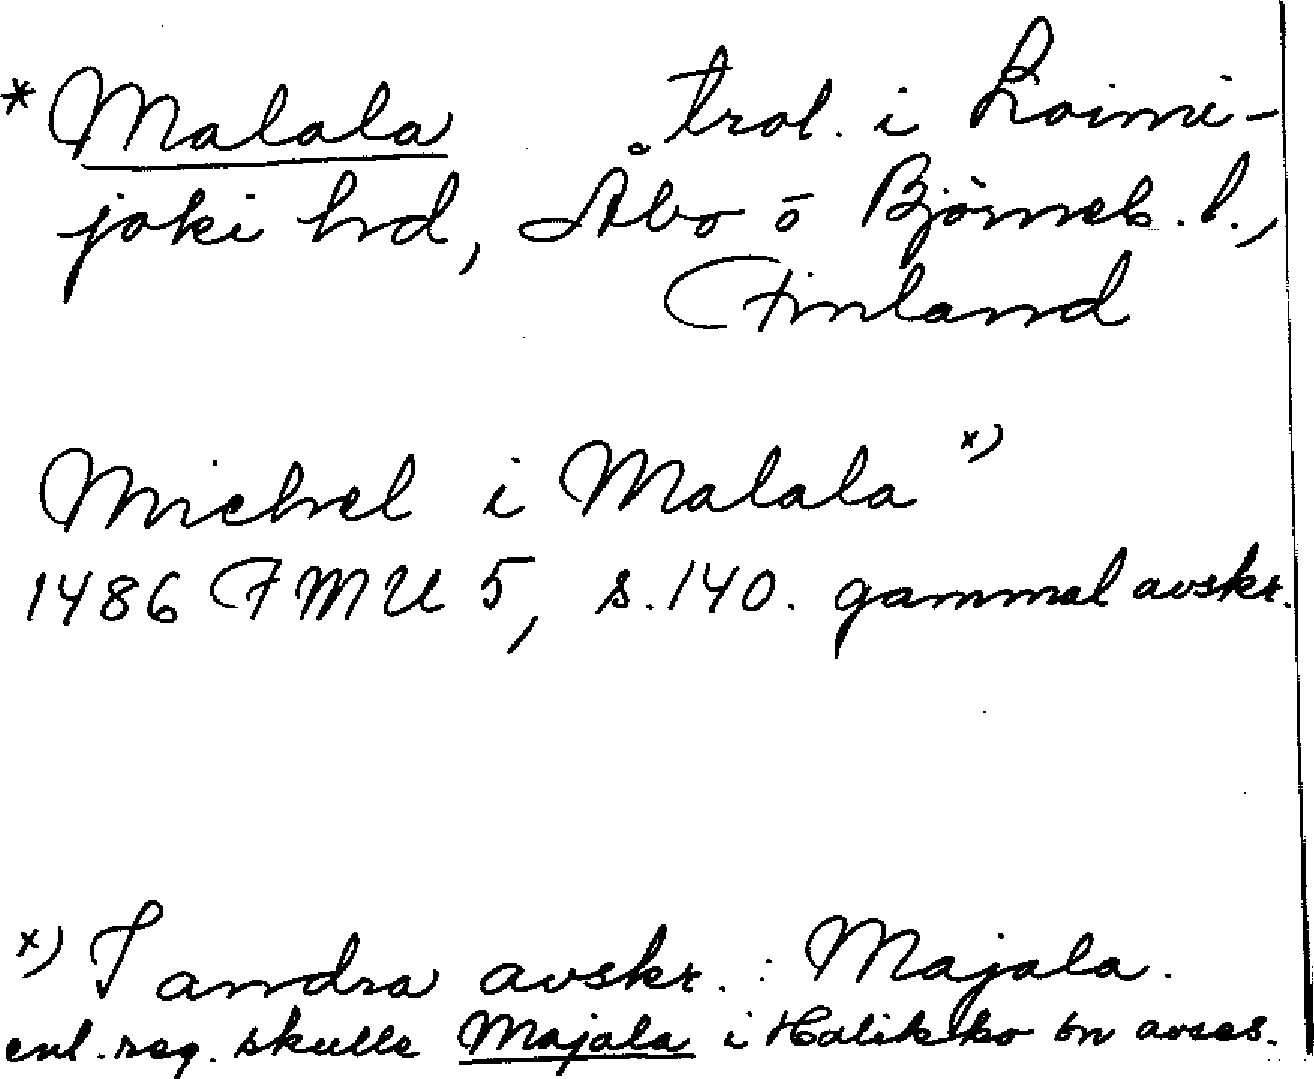 * Malala trol. i Loimi-
joki hrd, Åbo o Björneb. l.,
Finland
Michel i Malala x)
1486 FMU 5, s. 140. gammal avskr.
x) I andra avskr. : Majala.
enl. reg. skulle Majala i Halikko sn avses.